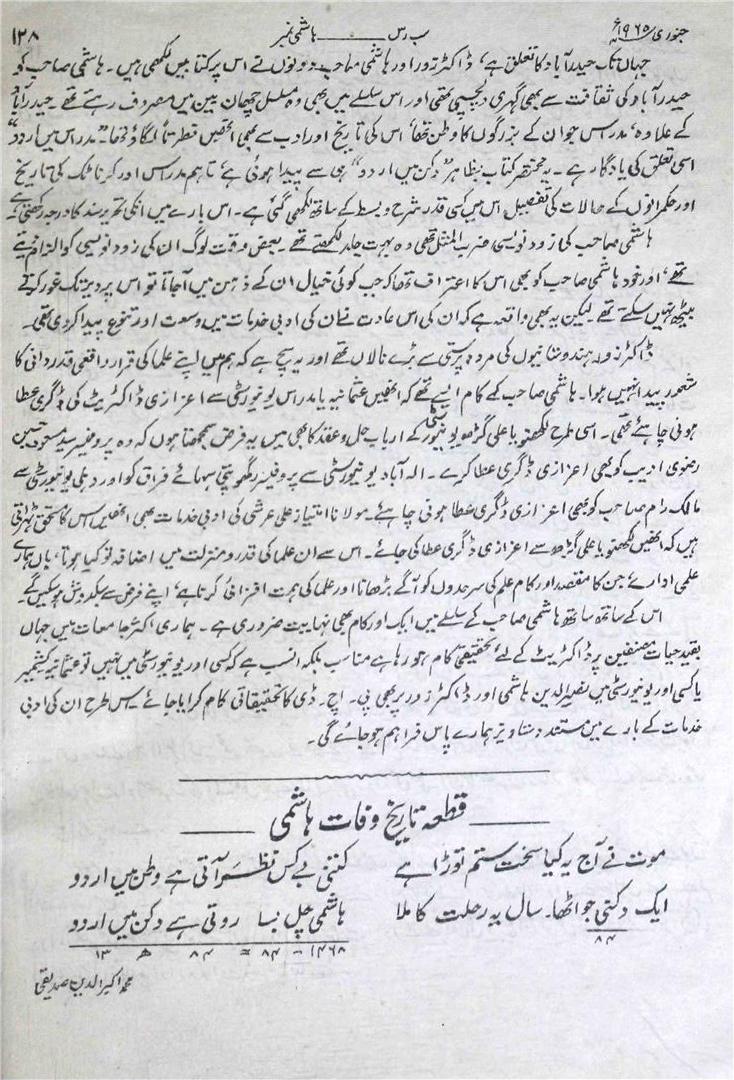 جنوری ۱۹۶۵ء سب رس ــــــ ہاشمی نمبر ۱۲۸
جہاں تک حیدرآباد کا تعلق ہے، ڈاکٹر زور اور ہاشمی صاحب دونوں نے اس پر کتابیں لکھی ہیں۔ ہاشمی صاحب کو
حیدرآباد کی ثقافت سے بھی گہری دلچسپی تھی اور اس سلسلے میں بھی وہ مسلسل چھان بین میں مصروف رہتے تھے۔ حیدرآباد
کے علاوہ، مدراس جو ان کے بزرگوں کا وطن تھا، اس کی تاریخ اور ادب سے بھی انھیں فطرتاً لگاؤ تھا۔ "مدراس میں اردو"
اسی تعلق کی یادگار ہے۔ یہ مختصر کتاب بظاہر "دکن میں اردو" ہی سے پیدا ہوئی ہے، تاہم مدراس اور کرناٹک کی تاریخ
اور حکمرانوں کے حالات کی تفصیل اس میں کسی قدر شرح و بسط کے ساتھ لکھی گئی ہے۔ اس بارے میں انکی تحریر سند کا درجہ رکھتی ہے۔
ہاشمی صاحب کی زود نویسی ضرب المثل تھی وہ بہت جلد لکھتے تھے۔ بعض وقت لوگ ان کی زود نویسی کو الزام دیتے
تھے، اور خود ہاشمی صاحب کو بھی اس کا اعتراف تھا کہ جب کوئی خیال ان کے ذہن میں آجاتا تو اس پر دیر تک غور کرتے
بیٹھ نہیں سکتے تھے۔ لیکن یہ بھی واقعہ ہے کہ ان کی اس عادت نے ان کی ادبی خدمات میں وسعت اور تنوع پیدا کردی تھی۔
ڈاکٹر زور ہندوستانیوں کی مردہ پرستی سے بڑے نالاں تھے اور یہ سچ ہے کہ ہم میں اپنے علما کی قرار واقعی قدردانی کا
شعور پیدا نہیں ہوا۔ ہاشمی صاحب کے کام ایسے تھے کہ انھیں عثمانیہ یا مدراس یونیورسٹی سے اعزازی ڈاکٹریٹ کی ڈگری عطا
ہونی چاہئے تھی۔ اسی طرح لکھنو یا علی گڑھ یونیورسٹی کے ارباب حل و عقد کا بھی میں یہ فرض سمجھتا ہوں کہ وہ پروفیسر سید مسعود حسین
رضوی ادیب کو بھی اعزازی ڈگری عطا کرے۔ الہ آباد یونیورسٹی سے پروفیسر رگھوپتی سہائے فراق کو اور دہلی یونیورسٹی سے
مالک رام صاحب کو بھی اعزازی ڈگری عطا ہونی چاہئے۔ مولانا امتیاز علی عرشی کی ادبی خدمات بھی انھیں اس کا مستحق ٹہراتی
ہیں کہ انھیں لکھنو یا علی گڑھ سے اعزازی ڈگری عطا کی جائے۔ اس سے ان علما کی قدر و منزلت میں اضافہ تو کیا ہوتا، ہاں ہمارے
علمی ادارے، جن کا مقصد اور کام علم کی سرحدوں کو آگے بڑھانا اور علما کی ہمت افزائی کرنا ہے، اپنے فرض سے سبکدوش ہوسکیں گے۔
اس کے ساتھ ساتھ ہاشمی صاحب کے سلسلے میں ایک اور کام بھی نہایت ضروری ہے۔ ہماری اکثر جامعات میں جہاں
بقید حیات مصنفین پر ڈاکٹریٹ کے لئے تحقیقی کام ہورہا ہے مناسب بلکہ انسب ہے کہ کسی اور یونیورسٹی میں نہیں تو عثمانیہ کشمیر
یا کسی اور یونیورسٹی میں نصیر الدین ہاشمی اور ڈاکٹر زور پر بھی پی۔ ایچ۔ ڈی کا تحقیقاتی کام کرایا جائے۔ اس طرح ان کی ادبی
خدمات کے بارے میں مستند دستاویز ہمارے پاس فراہم ہوجائے گی۔
قطعہ تاریخ وفات ہاشمی
موت نے آج یہ کیا سخت ستم توڑا ہے کتنی بے کس نظر آتی ہے وطن میں اردو
ایک دکنی جو اٹھا۔ سال یہ رحلت کا ملا ہاشمی چل بسا روتی ہے دکن میں اردو
۸۴
۱۴۶۸ - ۸۴ = ۸۴ ھ ۱۳
محمد اکبر الدین صدیقی